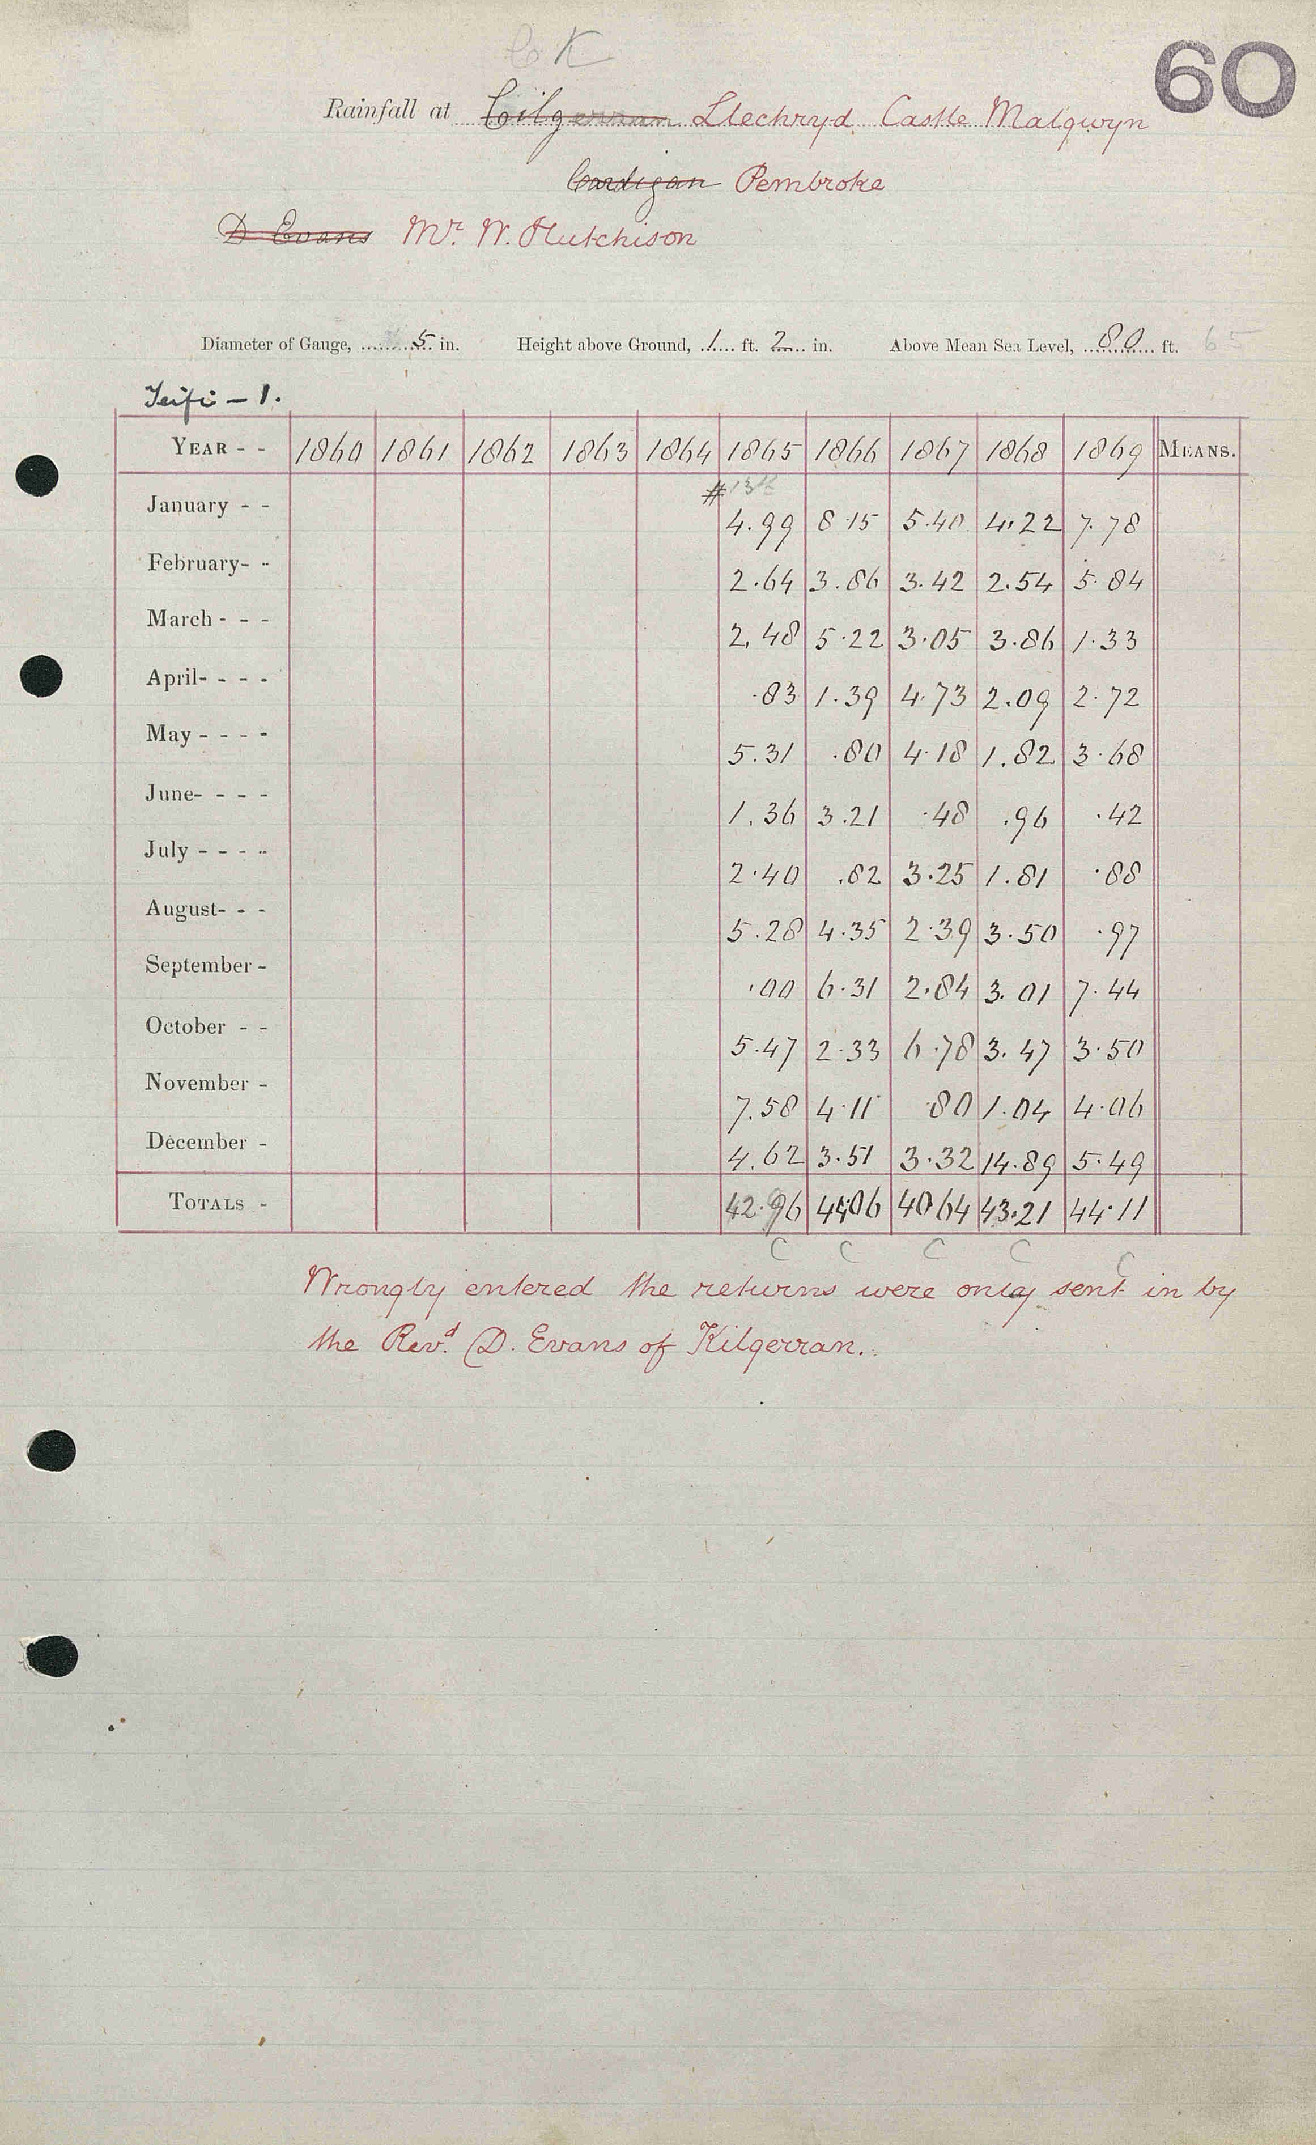 C K
60
Rainfall at Cilgerran Llechryd. Castle Malgwyn
Cardigan Pembroke
D Evans Mr. W. Hutchison
Diameter of Gauge, 5 in. Height above Ground, 1 ft. 2 in. Above Mean Sea Level, 80 ft. 65
Teifi - 1.
YEAR - - 1860 1861 1862 1863 1864 1865 1866 1867 1868 1869 MEANS.
#
January - - 4.99 8.15 5.40 4.22 7.78
February- - 2.64 3.86 3.42 2.54 5.84
March - - - 2.48 5.22 3.05 3.86 1.33
April- - - - .83 1.39 4.73 2.09 2.72
May - - - - 5.31 .80 4.18 1.82 3.68
June- - - - 1.36 3.21 .48 .96 .42
July - - - - 2.40 .82 3.25 1.81 .88
August- - - 5.28 4.35 2.39 3.50 .97
September - .00 6.31 2.84 3.01 7.44
October - - 5.47 2.33 6.78 3.47 3.50
November - 7.58 4.11 .80 1.04 4.06
December - 4.62 3.51 3.32 14.89 5.49
TOTALS - 42.96 44.06 40.64 43.21 44.11
C C C C C
Wrongly entered the returns were only sent in by
the Revd. D. Evans of Kilgerran.